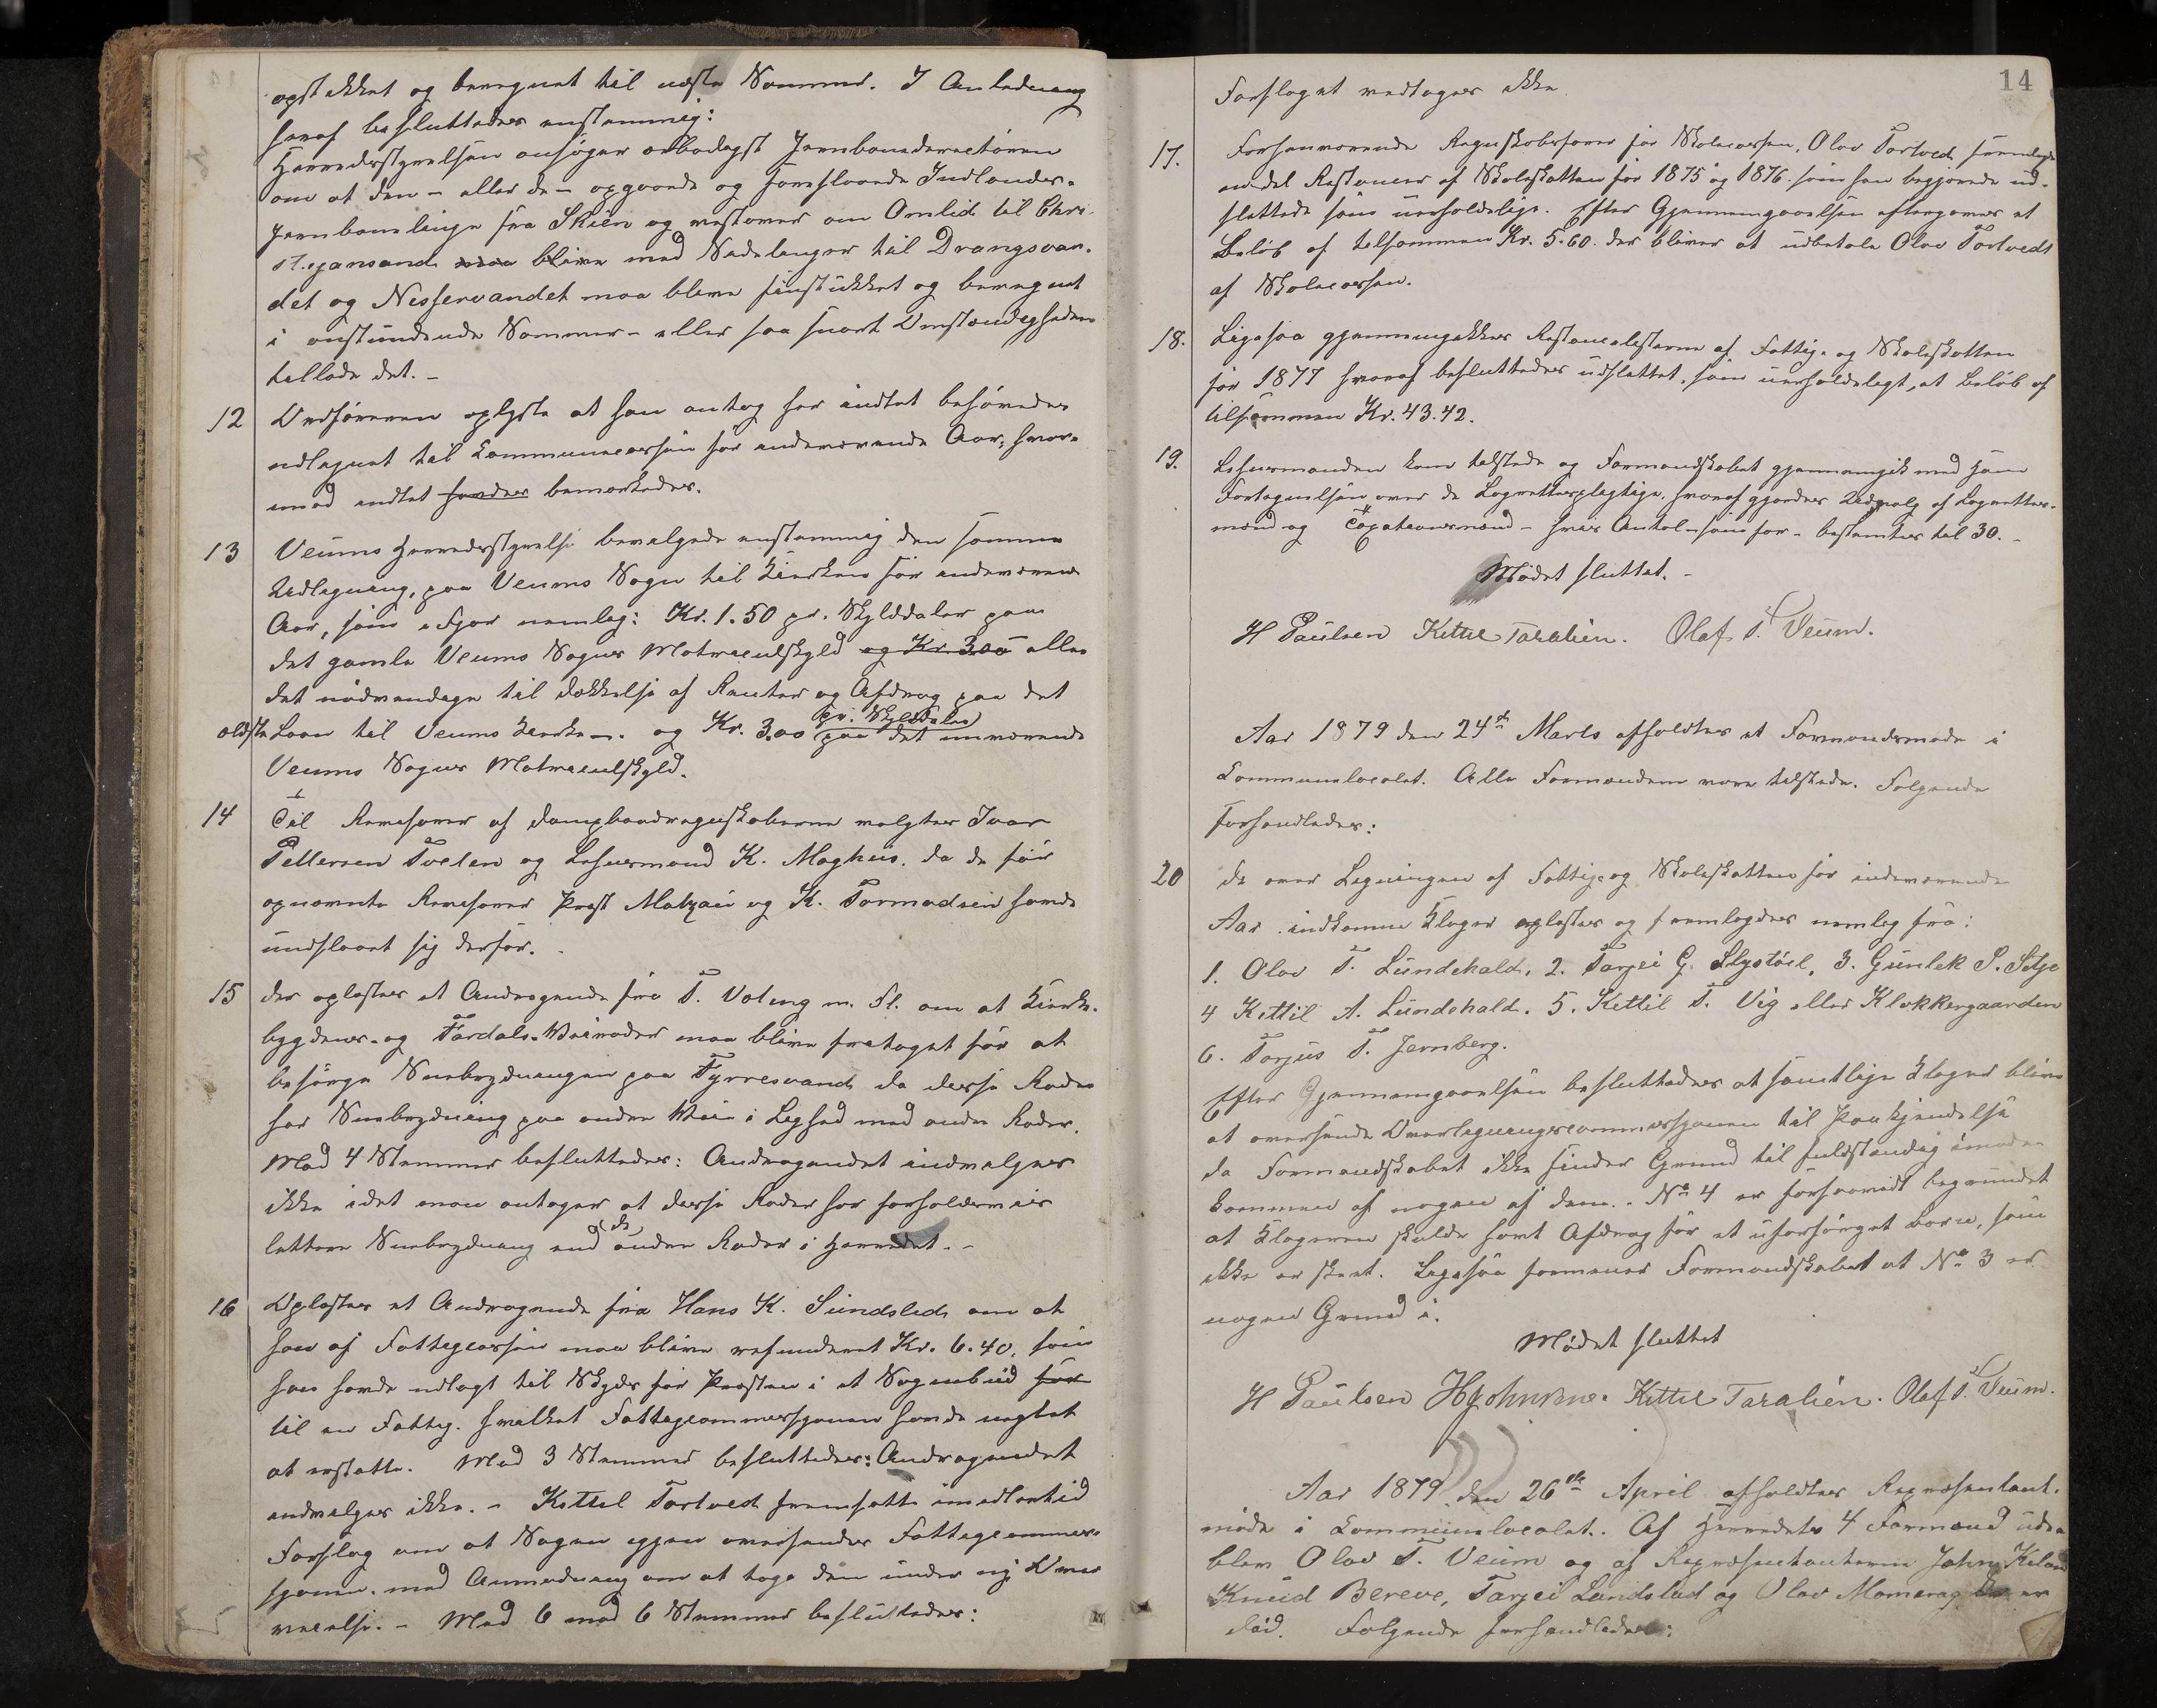 opstukket og beregnet til næste Sommer. I Anledning
heraf besluttedes enstemmig:
Herredsstyrelsen ansøger ærbødigst Jernbanedirectøren
om at den – eller de – opgaaede og foreslaaede Indlands-
jernbanelinje fra Skien og vestover om Omlid til Chri-
stiansand maa blive med Sidelinjer til Drangsvan-
det og Nisservandet maa blive finstukket og beregnet
i anstundende Sommer – eller saa snart Omstændigheden
tillade det. –
12 Ordføreren oplyste at han antog her indtet behøvedes
udlignet til Communecassen for indeværende Aar; hvor-
imod indtet havdes bemærkedes.
13 Veums Herredsstyrelse bevilgede enstemmig den samme
Udligning, paa Veums Sogn til Kirken for indeværende
Aar, som i Fjor nemlig: Kr. 1.50 pr. Skylddaler paa
det gamle Veums Sogns Matriculskyld og Kr 3.00 eller
det nødvendige til Dækkelse af Renter og Afdrag paa det
ældste Laan til Veums Kirke –. og Kr. 3.00 pr. Skylddaler paa det nuværende
Veums Sogns Matriculskyld.
14 Til Revisorer af Sampbaadregnskaberne valgtes Ivar
Pettersen Tveten og Lehnsmand K. Moghus, da de før
opnævnte Revisorer Prest Matzau og K. Tormodsen havde
undslaaet sig derfor. –
15 Der oplæstes et Andragende fra T. Voling m. Fl. om at Kirke-
bygdens- og Fardals-Veiroder maa blive fritaget for at
besørge Snebrydningen paa Fyrresvand da disse Roder
har Snebrydning paa anden Vei i Lighed med andre Roder.
Med 4 Stemmer besluttedes: Andragendet indvilges
ikke idet man antager at disse Roder har forholdsvis
lettere Snebrydning end de andre Roder i Herredet. –
16 Oplæstes et Andragende fra Hans K. Sundslid om at
han af Fattigcassen maa blive refunderet Kr. 6.40, som
han havde udlagt til Skyds for Præsten i et Sognebud for
til en Fattig. hvilket Fattigcommissjonen havde negtet
at erstatte. Med 3 Stemmer besluttedes: Andragendet
indvilges ikke. – Kittil Tortvedt fremsatte imidlertid
Forslag om at Sagen igjen oversendes Fattigcommis-
sjonen, med Anmodning om at tage den under ny Over
veielse. – Med 6 mod 6 Stemmer besluttedes:
14
Forslaget vedtages ikke.
17. Forhenværende Regnskabsfører for Skolecassen, Olav Tortvedt fremlagde
en del Restancer af Skoleskatten for 1875 og 1876. som han begjærede ud-
slettede som uerholdelige. Efter Gjennemgaaelsen eftergaves et
Beløb af tilsammen Kr. 5.60. der bliver at udbetale Olav Tortvedt
af Skolecassen.
18. Ligesaa gjennemgikkes Restancelisterne af Fattig- og Skoleskatten
for 1877 hvoraf besluttedes udslettet, som uerholdeligt, et Beløb af
tilsammen Kr. 43.42.
19. Lehnsmanden kom tilstede og Formandskabet gjennemgik med ham
Fortegnelsen over de Lagrettespligtige. hvoraf gjordes Udvalg af Lagrettes-
mænd og Taxationsmænd – hvis Antal – som før – bestemtes til 30. –
Mødet sluttet. –
H Paulsen Kittil Taralien. Olaf T. Veum.
Aar 1879 den 24de Marts afholdtes et Formandsmøde i
Communelocalet. Alle Formændene vare tilstede. Følgende
forhandledes:
20 De over Ligningen af Fattig- og Skoleskatten for indeværende
Aar indkomne Klager oplæstes og fremlagdes nemlig fra:
1. Olav T. Lundekald, 2. Tarjei G. Slystøil, 3. Gunlek S. Setje
4 Kittil A. Lundekald. 5. Kittil T. Vig eller Klokkergaarden
6. Torjus T. Jernberg.
Efter Gjennemgaaelsen besluttedes at samtlige Klager bliver
at oversende Overligningscommissjonen til Paakjendelse
da Formandskabet ikke finder Grund til fuldstændig imøde-
kommen af nogen af dem. – No 4 er forsaavidt begrundet
at Klageren skulde havt Afdrag for et uforsørget Barn, som
ikke er skeet. Ligesaa formener Formandskabet at No 3 er
nogen Grund i.
Mødet sluttet
H Paulsen Kittil Taralien. Olaf T. Veum.
Aar 1879 den 26de April afholdtes Repræsentant-
møde i Communelocalet. Af Herredets 4 Formænd ude-
blev Olav T. Veum og af Repræsentanterne John Kiland
Knud Bereve, Tarjei Lundslid og Olav Momrag er
død. Følgende forhandledes: